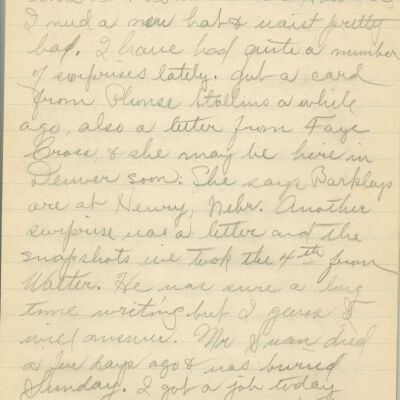 I need a new hat & waist pretty
bad. I have had quite a number
of surprises lately. Got a card
from Phonse Stallins a while
ago, also a letter from Faye
Cross, & she may be here in
Denver soon. She says Barkleys
are at Henry, Nebr. Another
surprise was a letter and the
snapshots we took the 4th from
Walter. He was sure a long
time writing but I guess I
will answer. Mr died
a few days ago & was buried
Sunday. I got a job today